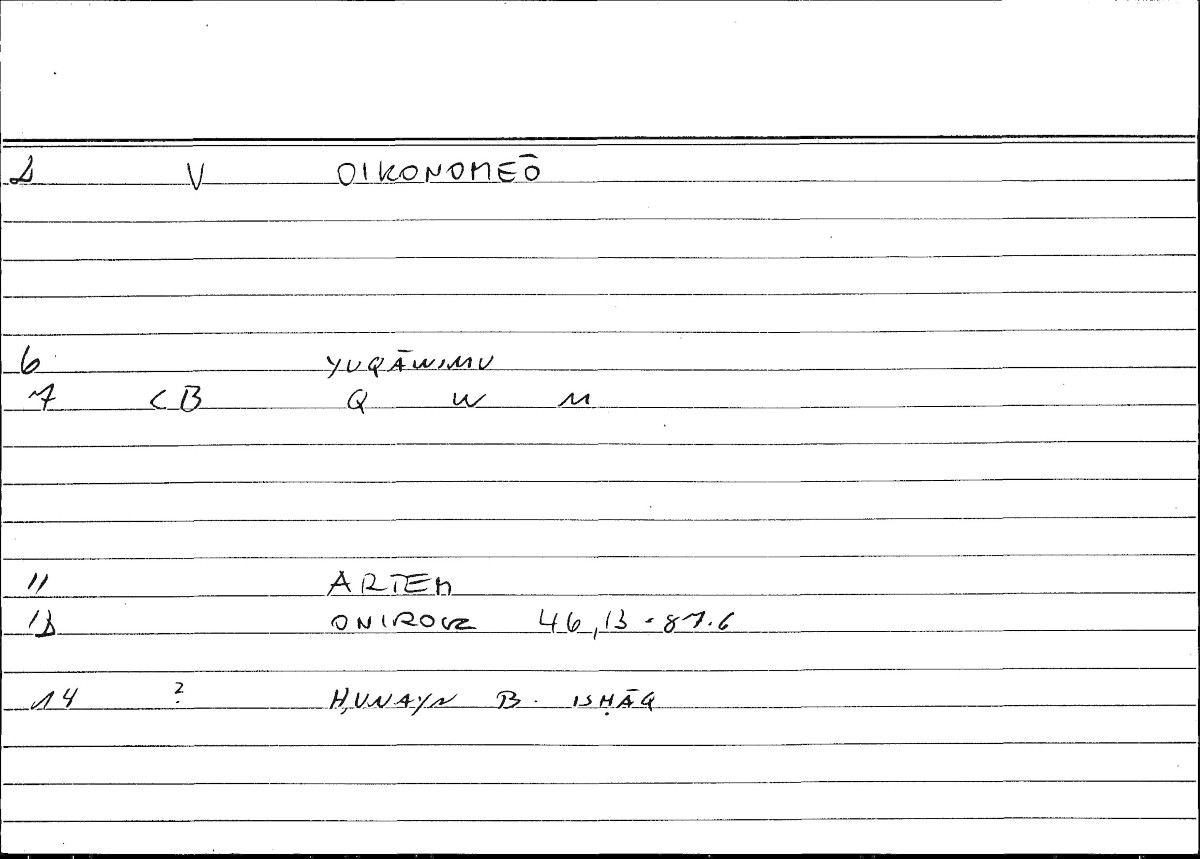 2 V OIKONOMEŌ
6 YUQĀWIMU
7 <B Q W M
11 ARTEM
13 ONIROCR 46,13 - 87.6
14 ? ḤUNAYN B. ISḤĀQ